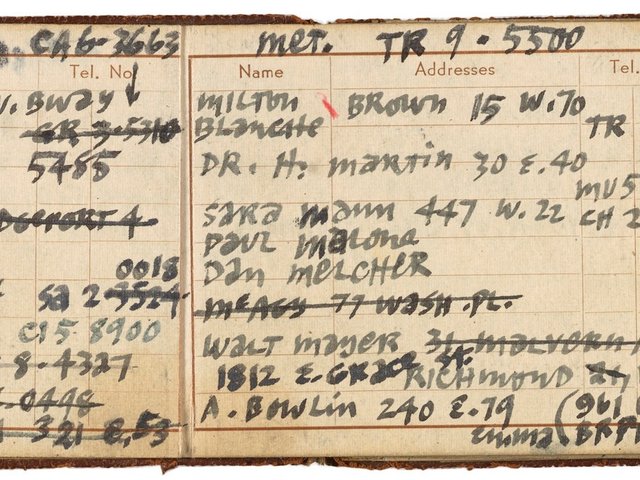 CA6-3663
Tel. No
. BWAY
GR 3-5310
5485
4
0018
SA 2 3524
CI 5 8900
8.4327
.0498
321 8,53
MET. TR 9.5500
Name Addresses Tel.
MILTON BROWN 15 W.70
BLANCHE TR
DR. H. MARTIN 30 E.40
MU5
SARA MANN 447 W.22 CH 2
PAUL MALONA
DAN MELCHER
MCAGY 77 WASH.PL.
WALT MAYER 31 MALVERN
1812 E. GRACE ST. RICHMOND 21,
A. BOWLIN 240 E.79 (961
EMMA. BRP